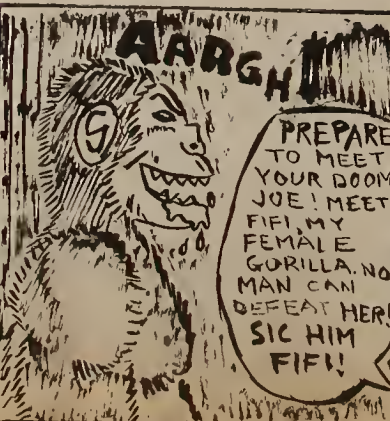 AARGH
PREPARE
TO MEET
YOUR DOOM
JOE! MEET
FIFI, MY
FEMALE
GORILLA. NO
MAN CAN
DEFEAT HER!
SIC HIM
FIFI!